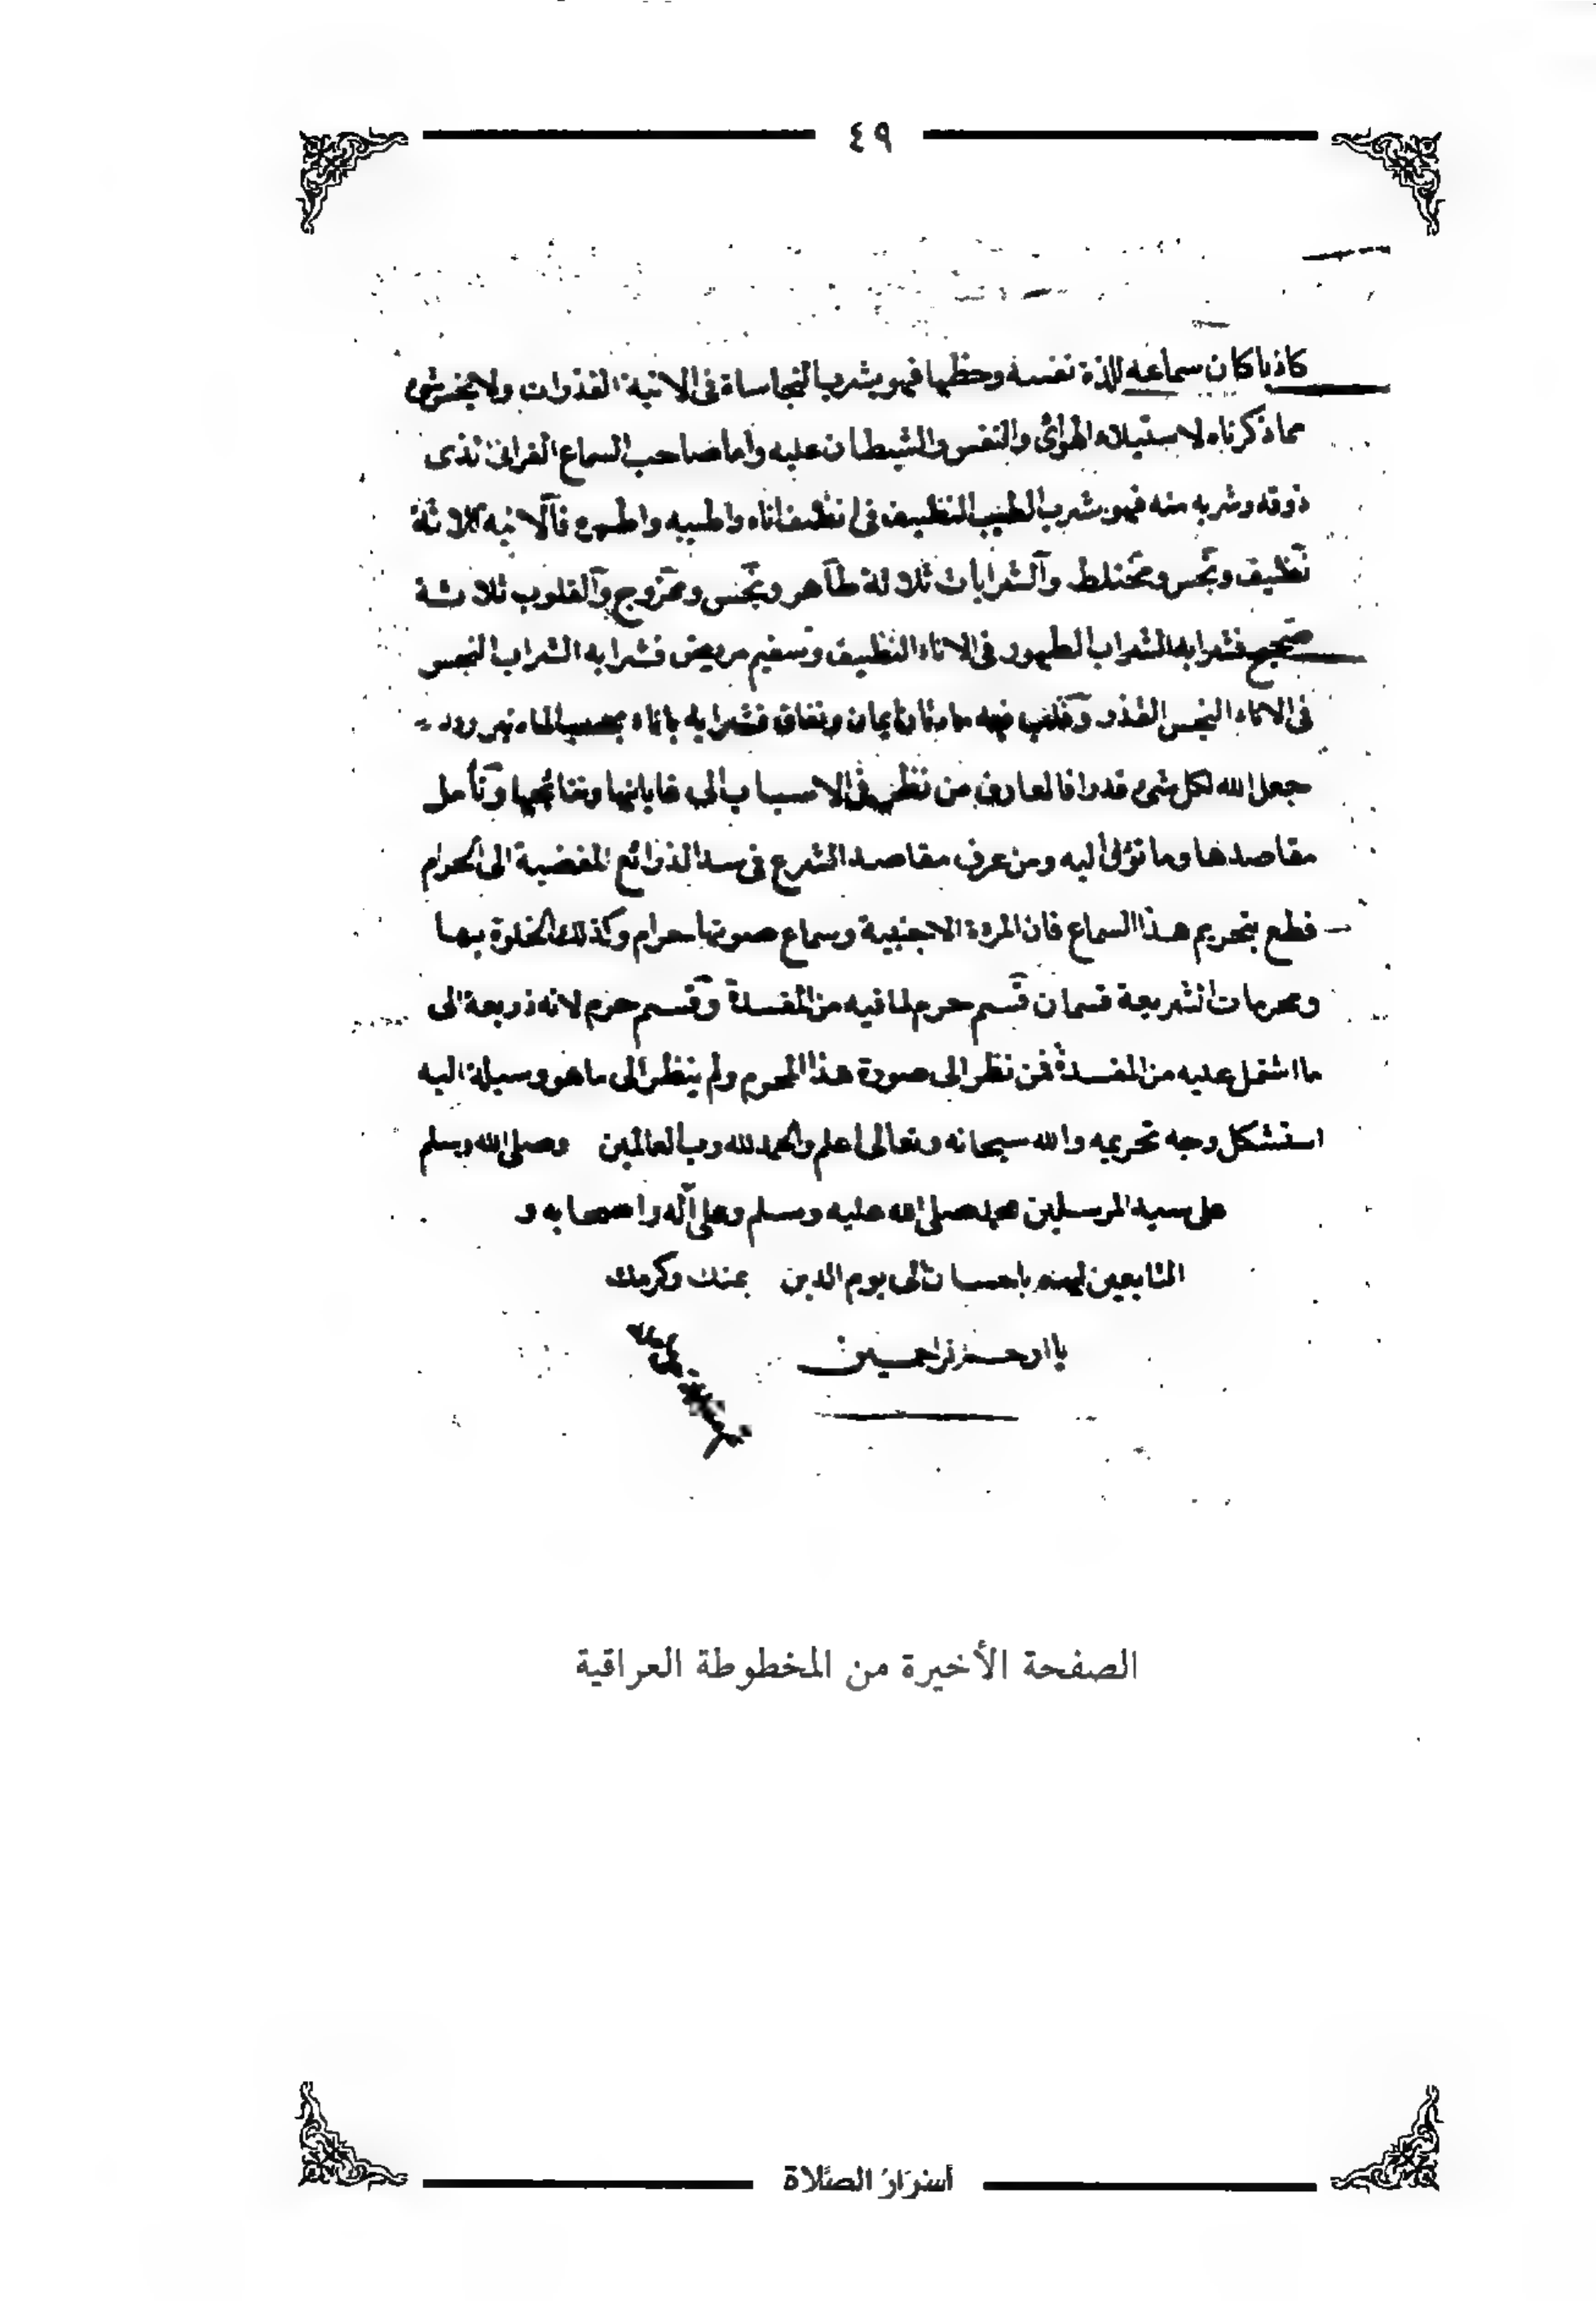 ٤٩
كاذبا كان سماعه للذة نفسه وحظها فهو يشرب النجاساة فى الانية القذرات ولا
مما ذكرناه لاستيلاء الهوائى والنفس والشيطان عليه وأما صاحب السماع القرانى الذى
ذوقه وشربه منه فهو يشرب الطيب النظيف فى انظف اناء واطيبه واطهره فالانيه ثلاثة
نظيف ونجس ومختلط والشرابات ثلاثة طاهر ونجس وممزوج والقلوب ثلاثة
صحيح فشرابه الشراب الطهور فى الاناء النظيف وسقيم مريض فشرابه الشراب النجس
فى الاناء النجس القذر وقلب فيه مادتان ايمان ونفاق فشرابه باناء بحسب الماء
جعل الله لكل شىء قدرا فالعارف من نظر فى الاسباب الى غاياتها ونتائجها وتأمل
مقاصدها وما تؤل اليه ومن عرف مقاصد الشرع فى سد الذرائع المفضية الى الحرام
قطع بتحريم هذا السماع فان المرءة الاجنبية وسماع صوتها حرام وكذلك الخلوة بها
ومحرمات الشريعة قسمان قسم حرم لما فيه من المفسدة وقسم حرم لانه ذريعة الى
ما اشتمل عليه من المفسدة فمن نظر الى صورة هذا المحرم ولم ينظر الى ما هو وسيلة اليه
استشكل وجه تحريمه والله سبحانه وتعالى اعلم والحمد لله رب العالمين وصلى الله وسلم
على سيد المرسلين محمد صلى الله عليه وسلم وعلى آله واصحابه و
التابعين لهم باحسان الى يوم الدين بمنك وكرمك
يا ارحم الراحمين
الصفحة الأخيرة من المخطوطة العراقية
أسْرَارُ الصَّلاة